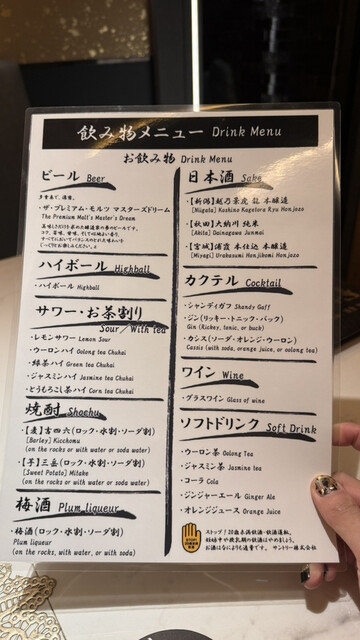 飲み物メニュー Drink Menu
お飲み物 Drink Menu
ビール Beer
・ザ・プレミアム・モルツ マスターズドリーム
The Premium Malt's Master's Dream
ハイボール Highball
・ハイボール Highball
サワー・お茶割り
Sour/With tea
・レモンサワー Lemon Sour
・ウーロンハイ Oolong tea Chuhai
・緑茶ハイ Green tea Chuhai
・ジャスミンハイ Jasmine tea Chuhai
・とうもろこし茶ハイ Corn tea Chuhai
焼酎 Shochu
・【麦】吉四六(ロック・水割・ソーダ割)
[Barley] Kicchomu
(on the rocks or with water or soda water)
・【芋】三岳(ロック・水割・ソーダ割)
[Sweet Potato] Mitake
(on the rocks or with water or soda water)
梅酒 Plum liqueur
・梅酒(ロック・水割・ソーダ割)
Plum liqueur
(on the rocks, with water, or with soda)
日本酒 Sake
・【新潟】越乃景虎 龍 本醸造
[Niigata] Koshino Kagetora Ryu Honjozo
・【秋田】大納川 純米
[Akita] Dainagawa Junmai
・【宮城】浦霞 本仕込 本醸造
[Miyagi] Urakasumi Honjikomi Honjozo
カクテル Cocktail
・シャンディガフ Shandy Gaff
・ジン(リッキー・トニック・バック)
Gin (Rickey, tonic, or buck)
・カシス(ソーダ・オレンジ・ウーロン)
Cassis (with soda, orange juice, or oolong tea)
ワイン Wine
・グラスワイン Glass of wine
ソフトドリンク Soft Drink
・ウーロン茶 Oolong Tea
・ジャスミン茶 Jasmine tea
・コーラ Cola
・ジンジャーエール Ginger Ale
・オレンジジュース Orange Juice
ストップ!20歳未満飲酒・飲酒運転。
妊娠中や授乳期の飲酒はやめましょう。
お酒はなによりも適量です。 サントリー株式会社